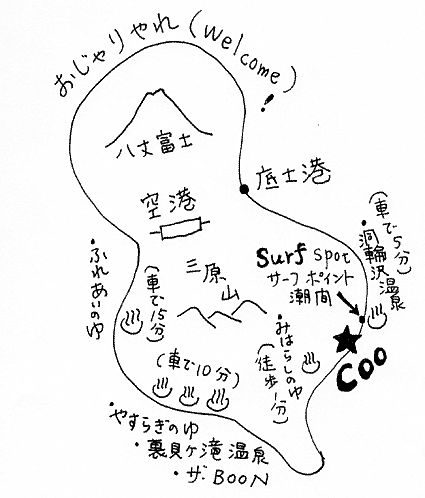 おじゃりやれ (Welcome)!
八丈富士
底土港
空港
(車で5分)
・洞輪沢温泉
Surf Spot
サーフポイント
潮間
・ふれあいのゆ
(車で15分)
三原山
・みはらしのゆ
(徒歩1分)
Coo
(車で10分)
・やすらぎのゆ
・裏見ヶ滝温泉
・ザ・BOON